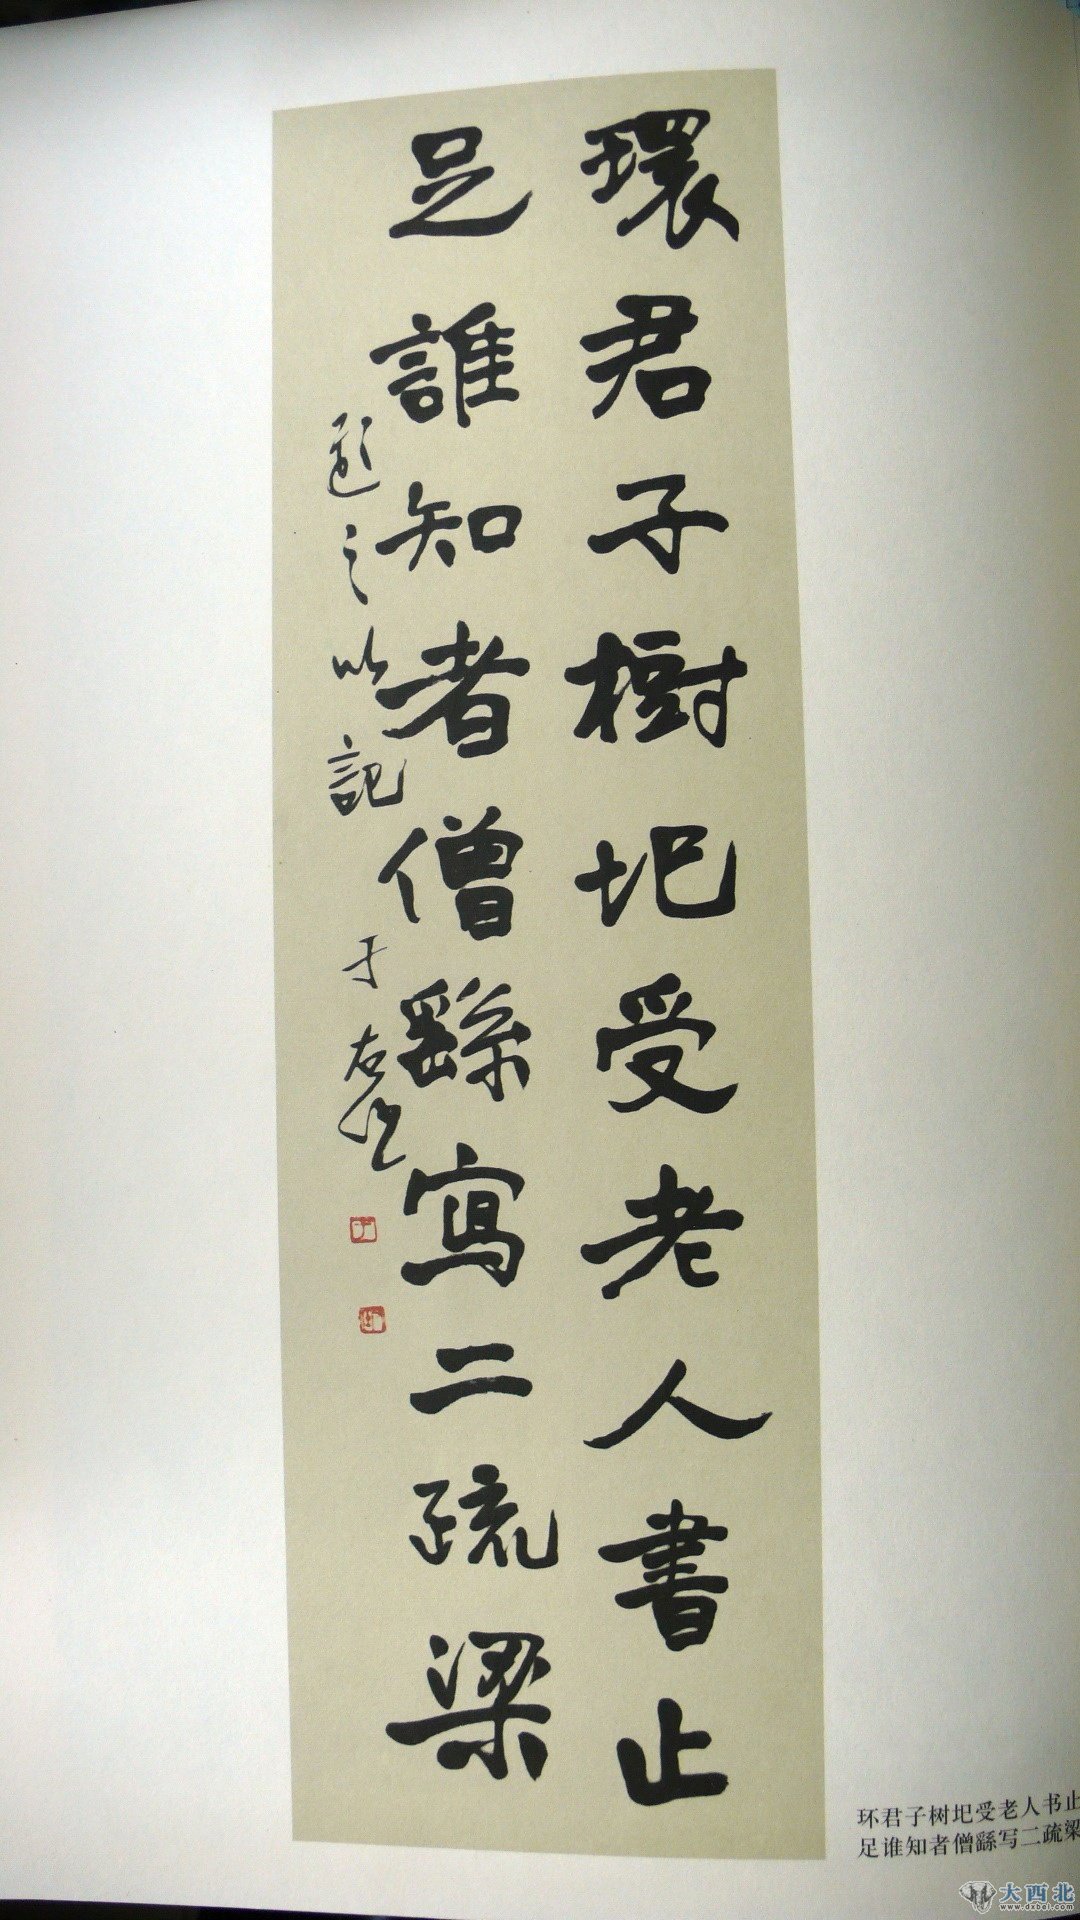 環君子樹圯受老人書止
足誰知者僧繇寫二疏梁
之以記 于右任
环君子树圯受老人书止
足谁知者僧繇写二疏梁
大西北
www.dxbei.com